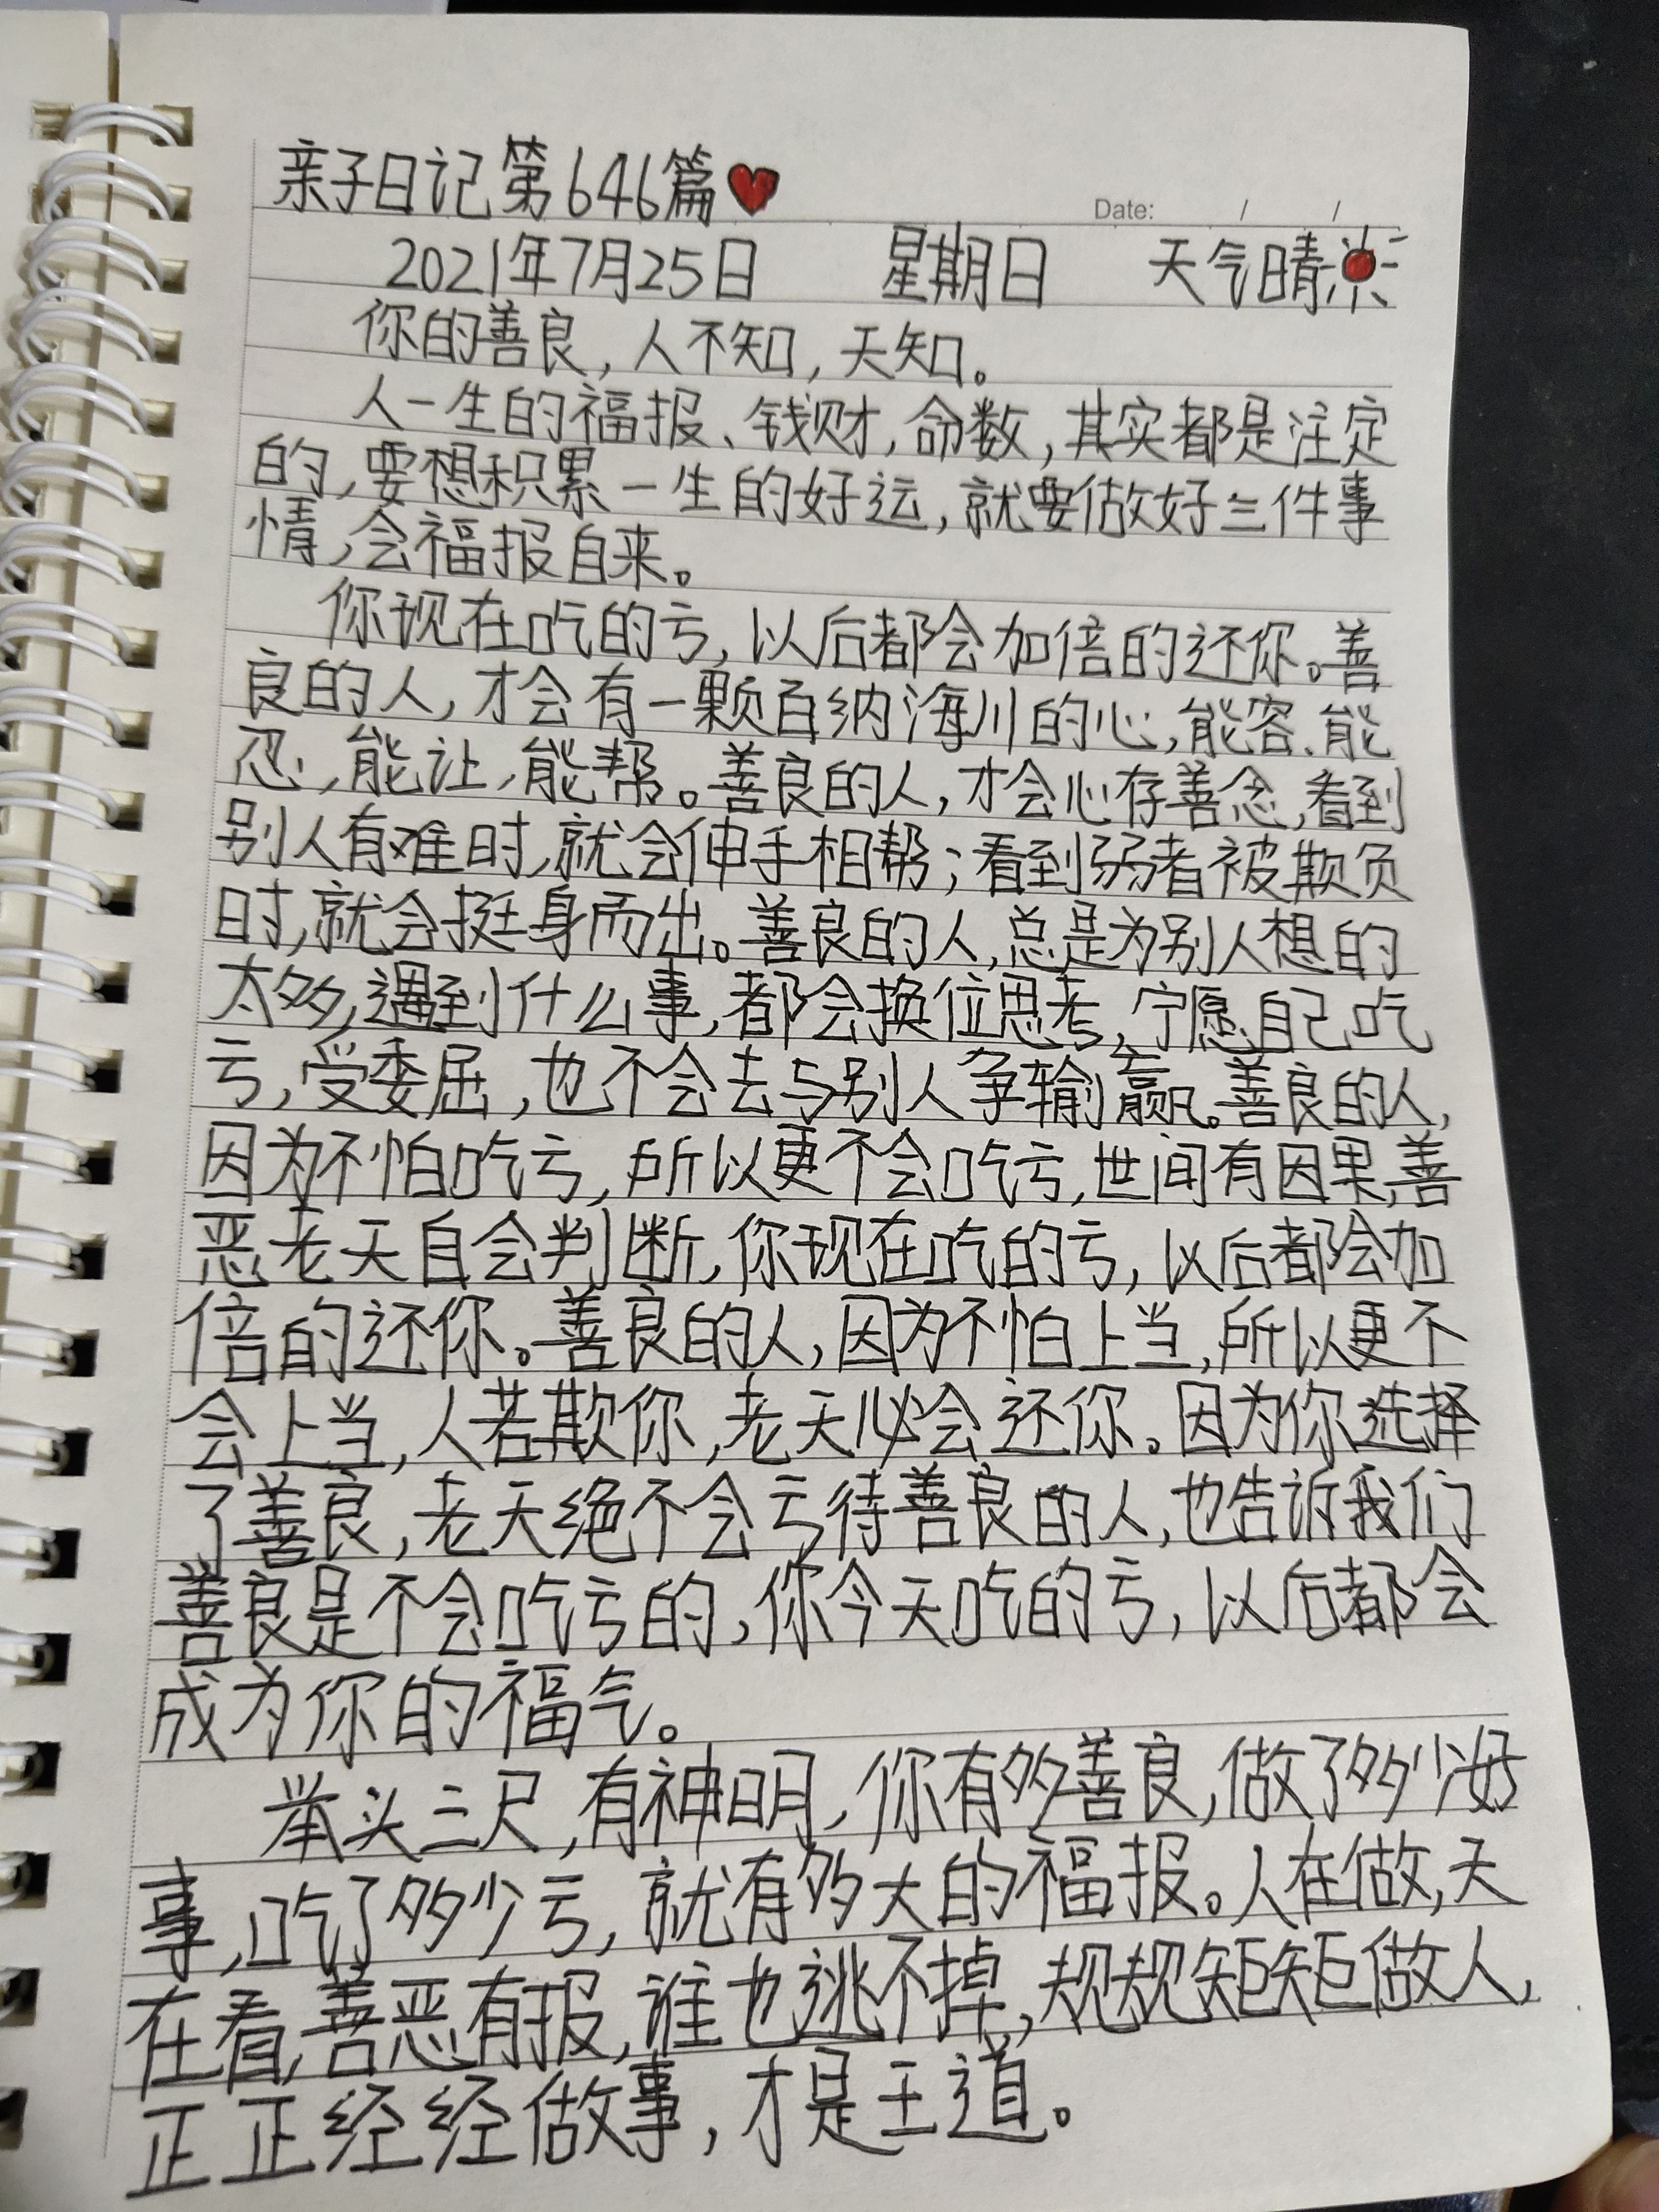 亲子日记第646篇
Date: / /
2021年7月25日 星期日 天气晴
你的善良,人不知,天知。
人一生的福报、钱财,命数,其实都是注定
的,要想积累一生的好运,就要做好三件事
情,会福报自来。
你现在吃的亏,以后都会加倍的还你。善
良的人,才会有一颗百纳海川的心,能容、能
忍,能让,能帮。善良的人,才会心存善念,看到
别人有难时,就会伸手相帮;看到弱者被欺负
时,就会挺身而出。善良的人,总是为别人想的
太多,遇到什么事,都会换位思考,宁愿自己吃
亏,受委屈,也不会去与别人争输赢。善良的人,
因为不怕吃亏,所以更不会吃亏,世间有因果,善
恶老天自会判断,你现在吃的亏,以后都会加
倍的还你。善良的人,因为不怕上当,所以更不
会上当,人若欺你,老天必会还你。因为你选择
了善良,老天绝不会亏待善良的人,也告诉我们
善良是不会吃亏的,你今天吃的亏,以后都会
成为你的福气。
举头三尺,有神明,你有多善良,做了多少好
事,吃了多少亏,就有多大的福报。人在做,天
在看,善恶有报,谁也逃不掉,规规矩矩做人,
正正经经做事,才是王道。